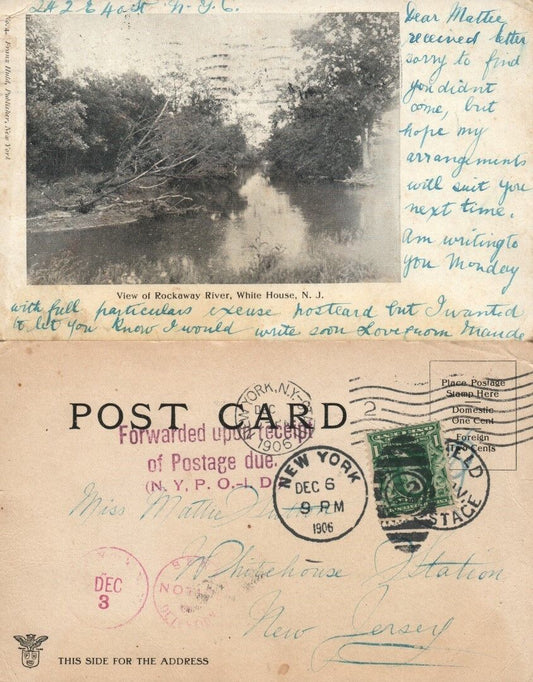 242 E 40th N.Y.C.
No. 4. Franz Huld, Publisher, New York
Dear Mattie
received letter
sorry to find
you didnt
come, but
hope my
arrangements
will suit you
next time.
Am writing to
you Monday
View of Rockaway River, White House, N. J.
with full particulars excuse postcard but I wanted
to let you know I would write soon Love from Maude
NEW YORK, N.Y.
1906
2
Place Postage
Stamp Here
Domestic
One Cent
Foreign
Two Cents
POST CARD
Forwarded upon receipt
of Postage due.
(N. Y. P. O.-I. D.)
NEW YORK
DEC 6
9 PM
1906
HELD
POSTAGE
Miss Mattie
Whitehouse Station
New Jersey
DEC
3
NOON
THIS SIDE FOR THE ADDRESS